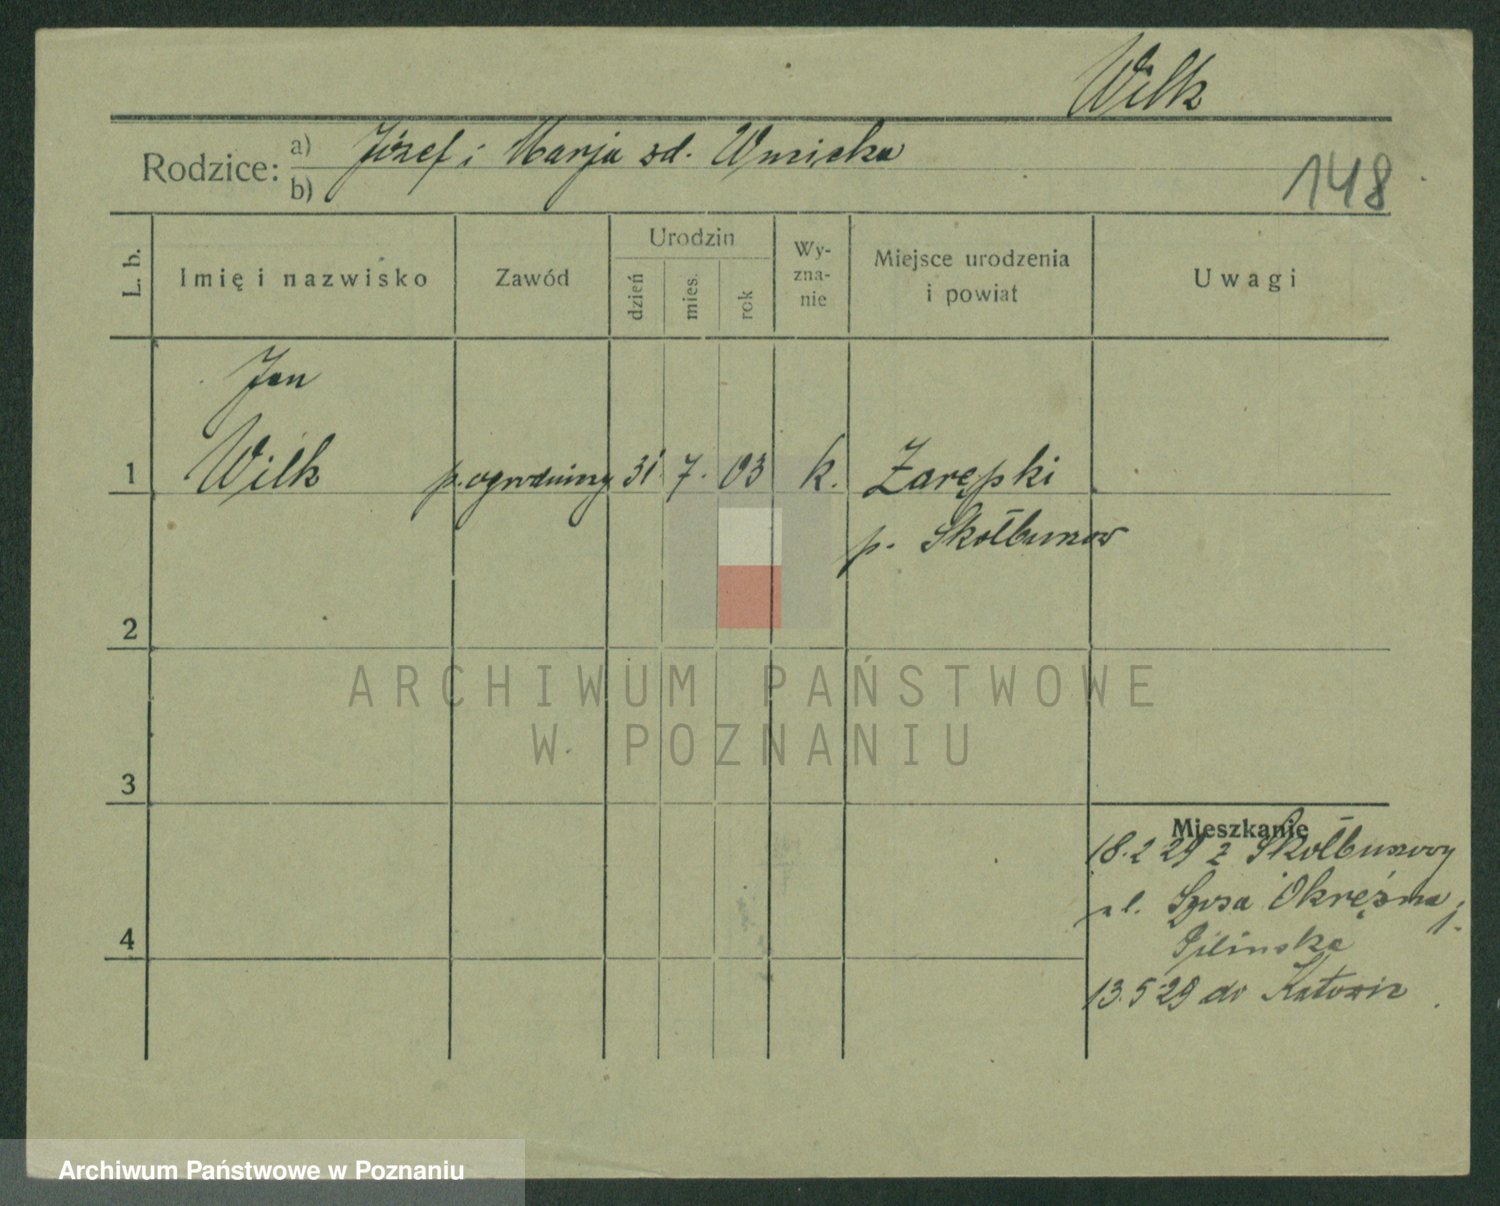 Wilk
Rodzice: a) Józef i Marja zd. Wnicka
b)
148
L. b.
Imię i nazwisko
Zawód
Urodzin
dzień
mies.
rok
Wy-
zna-
nie
Miejsce urodzenia
i powiat
Uwagi
Jan
1 Wilk p. ogrodniczy 31 7. 03 k. Zarępki
p. Skołbuszow
2
ARCHIWUM PAŃSTWOWE
W POZNANIU
3
Mieszkanie
18.2 29 z Skołbuszowy
ul. Okrężna
4
13.5 29 do Katowic
Archiwum Państwowe w Poznaniu